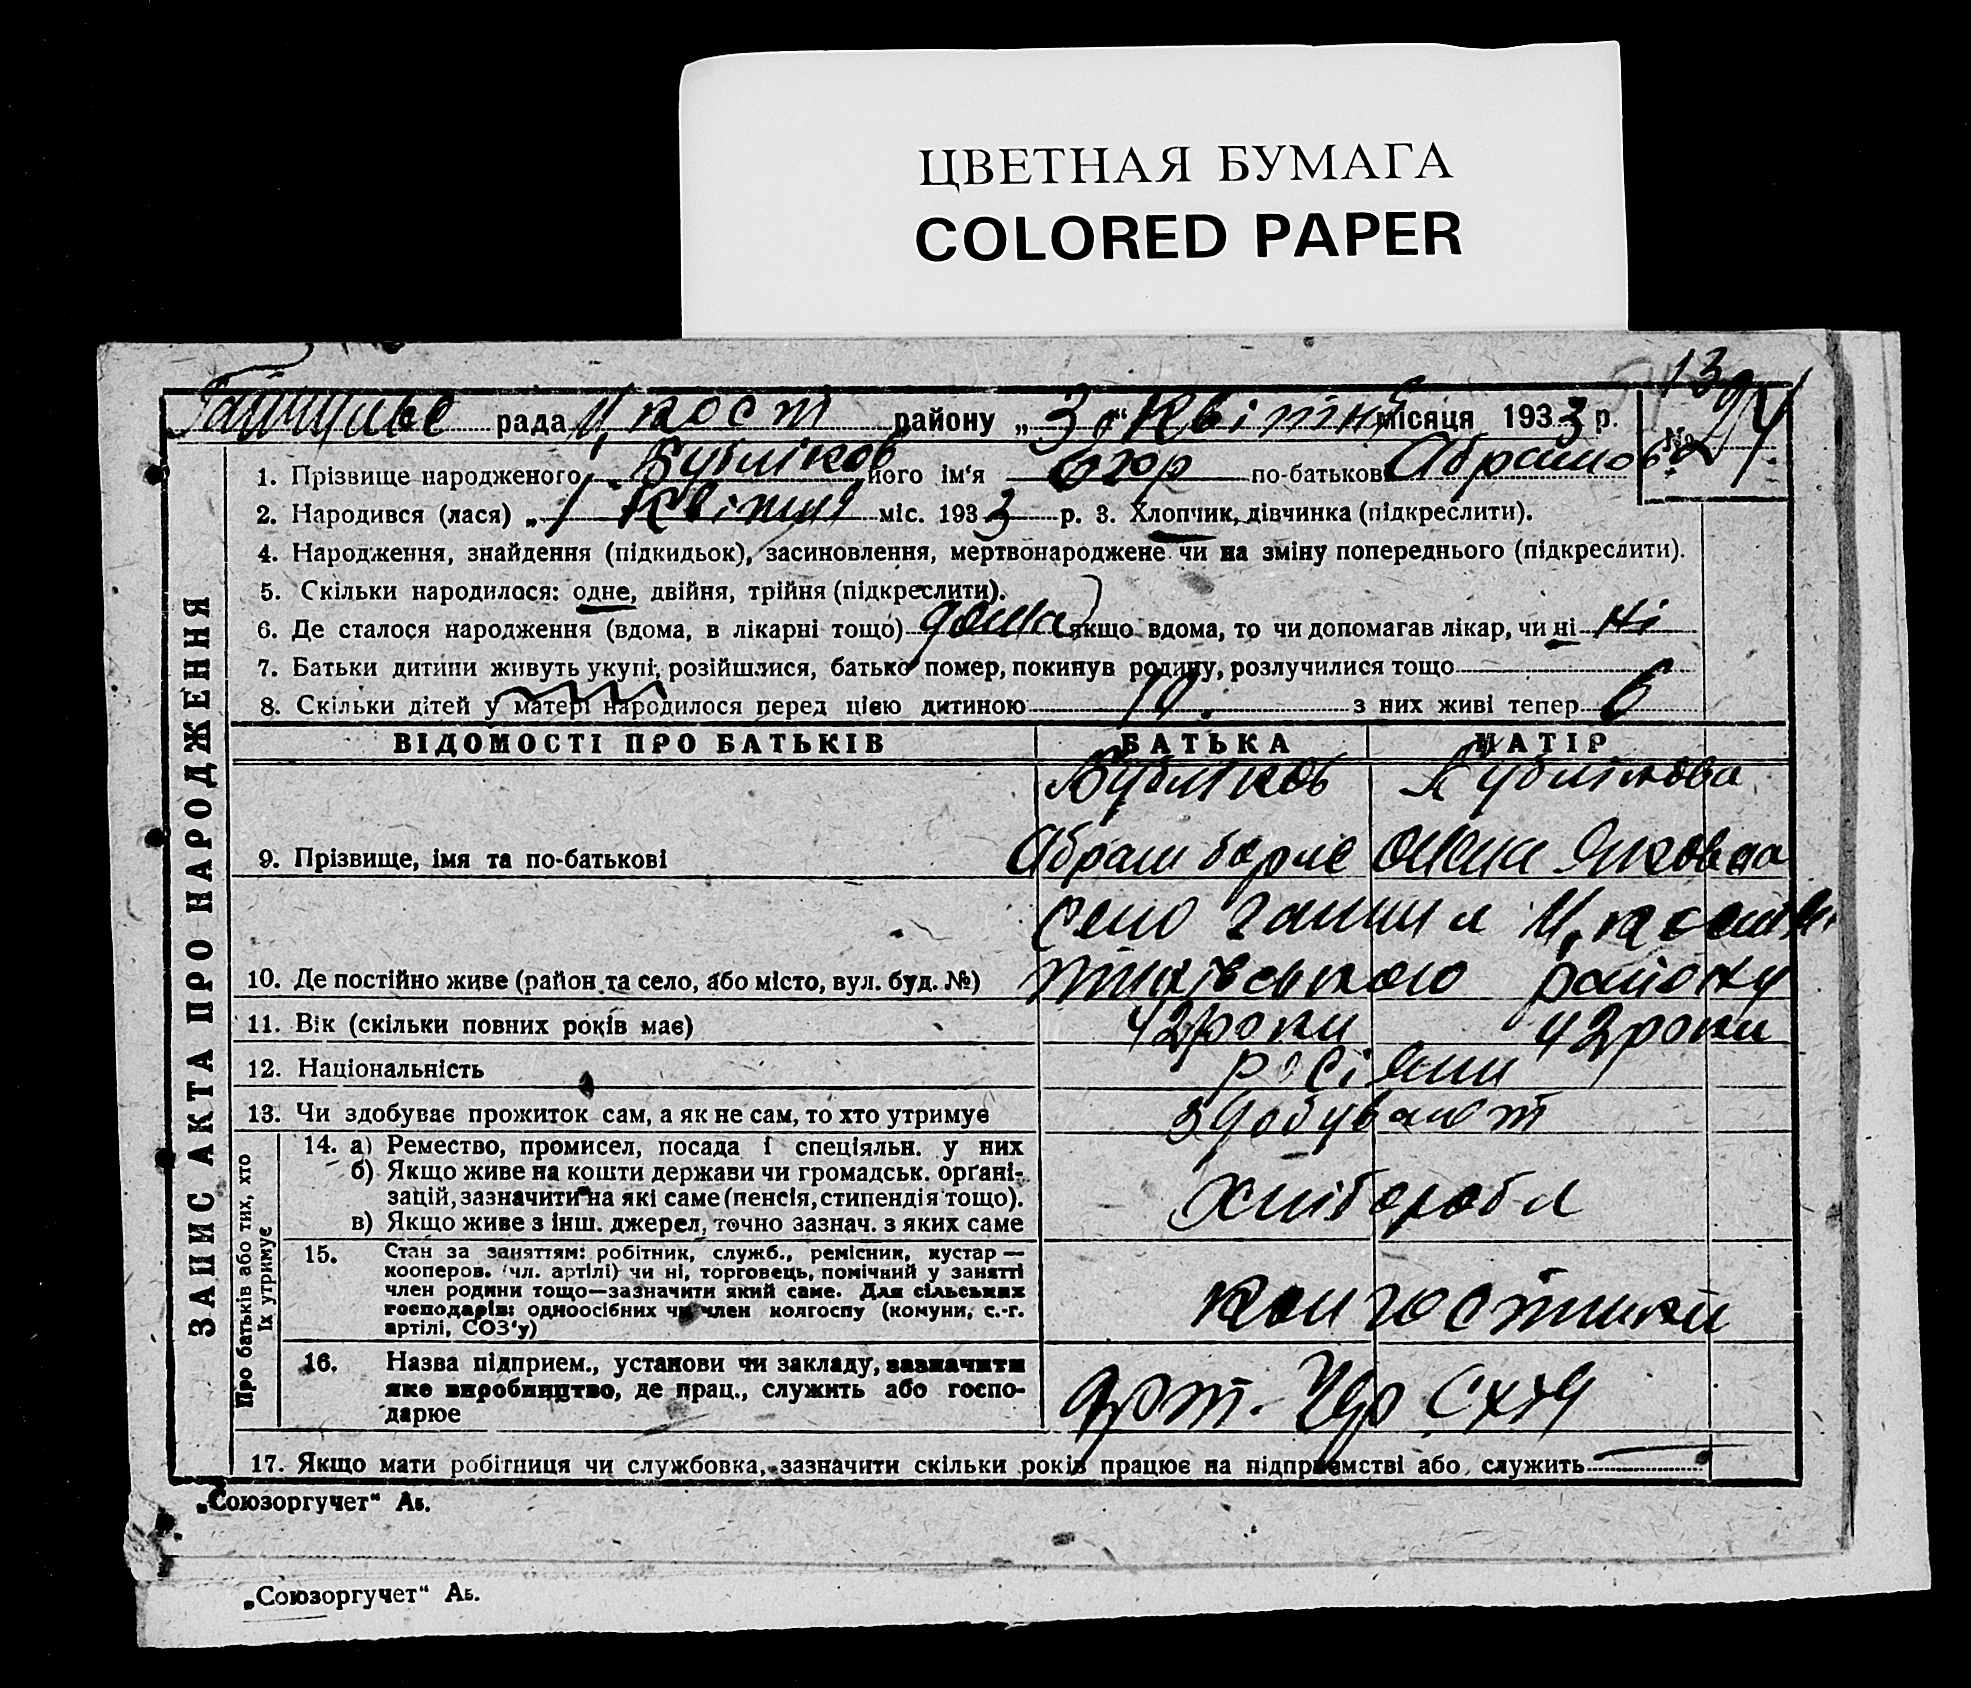 ЦВЕТНАЯ БУМАГА
COLORED PAPER
139
рада Ц, кост району „3“ Квітня місяця 1933 р. №
1. Прізвище народженого Бубліков його ім‘я по-батькові Абрамов
2. Народився (лася) „1 Квітня міс. 1933 р. 3. Хлопчик, дівчинка (підкреслити).
4. Народження, знайдення (підкидьок), засиновлення, мертвонароджене чи на зміну попереднього (підкреслити).
5. Скільки народилося: одне, двійня, трійня (підкреслити).
6. Де сталося народження (вдома, в лікарні тощо) дома якщо вдома, то чи допомагав лікар, чи ні ні
7. Батьки дитини живуть укупі, розійшлися, батько помер, покинув родину, розлучилися тощо
8. Скільки дітей у матері народилося перед цією дитиною 10. з них живі тепер 6
ЗАПИС АКТА ПРО НАРОДЖЕННЯ
ВІДОМОСТІ ПРО БАТЬКІВ БАТЬКА МАТІР
Бубліков Бублікова
9. Прізвище, імя та по-батькові Абрам Яковвна
село
10. Де постійно живе (район та село, або місто, вул. буд. №) району
11. Вік (скільки повних років має) 42 роки 42 роки
12. Національність росіяни
13. Чи здобуває прожиток сам, а як не сам, то хто утримує здобувают
Про батьків або тих, хто їх утримує
14. а) Ремество, промисел, посада і спеціяльн. у них
б) Якщо живе на кошти держави чи громадськ. орґані-
зацій, зазначити на які саме (пенсія, стипендія тощо).
в) Якщо живе з інш. джерел, точно зазнач. з яких саме
хлібороби
15. Стан за заняттям: робітник, служб., ремісник, кустар —
кооперов. (чл. артілі) чи ні, торговець, помічний у занятті
член родини тощо—зазначити який саме. Для сільських
господарів: одноосібних чи член колгоспу (комуни, с.-г.
артілі, СОЗ‘у)
16. Назва підприєм., установи чи закладу, зазначити
яке виробництво, де прац., служить або госпо-
дарюе
17. Якщо мати робітниця чи службовка, зазначити скільки років працює на підприємстві або служить
„Союзоргучет“ Аь.
„Союзоргучет“ Аь.